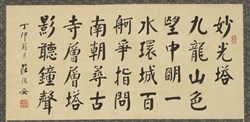 妙光塔
九龍山色
望中明一
水環城百
舸爭指問
南朝尋古
寺層層塔
影聽鐘聲